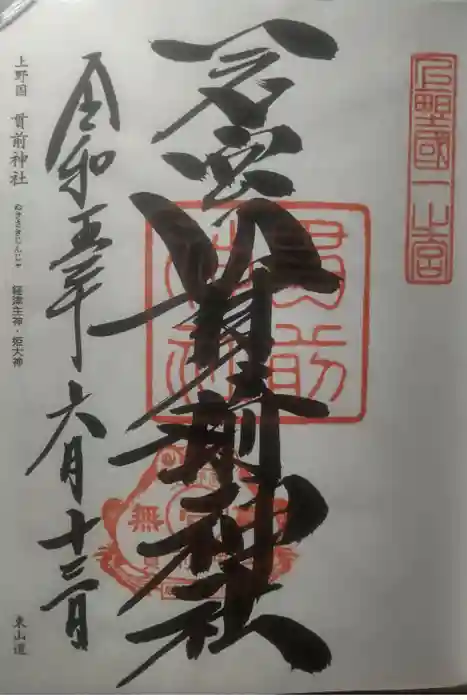 上野國一之宮
一之宮貫前神社
貫前神社
無
令和五年六月十三日
上野国 貫前神社 ぬきさきじんじゃ 経津主神・姫大神
東山道